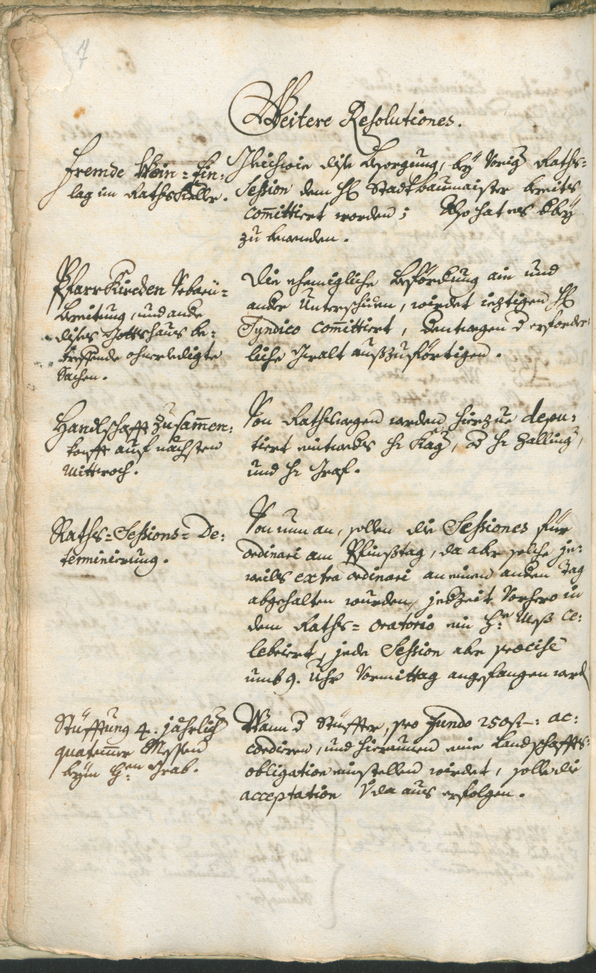 7
Weitere Resolutiones.
fremde Wein-Ein-
lag im RathsKeller.
Gleichwie dise Besorgung, bey vorig Raths-
Session dem H Stadtbaumaister bereits
committiert worden; Also hat es dbey
zu bewenden.
PfarrKirchen
und ande
dises Gottshaus be-
treffende ohnerledigte
Sachen.
Die Beförderung ain und
ander wirdet ieztigen H
Syndico comittiert, d erforder-
liche auszufertigen.
Handlschafft Zusammen-
kunfft auf nächsten
Mittwoch.
Von Rathswegen werden hierzue depu-
tiert H: H:
und H: Graf.
Raths-Sessions-De-
terminierung.
Von nun an, sollen die Sessiones für
ordinari am Pfinstag, da aber solche je-
weils extra ordinari an einem andern Tag
abgehalten wurden, jedzeit vorhero in
dem Raths-oratorio ein H: Mess ce-
lebriert, jede Session aber precise
umb 9. Uhr Vormittag angefangen werd
Stüfftung 4. jährlig
quatemer Messen
beym H: Grab.
Wann d Stüffter, pro Fundo 250 f: ac-
cordiren, und hierumen eine Landschaffts-
obligation einstellen wirdet, solle die
acceptation erfolgen.